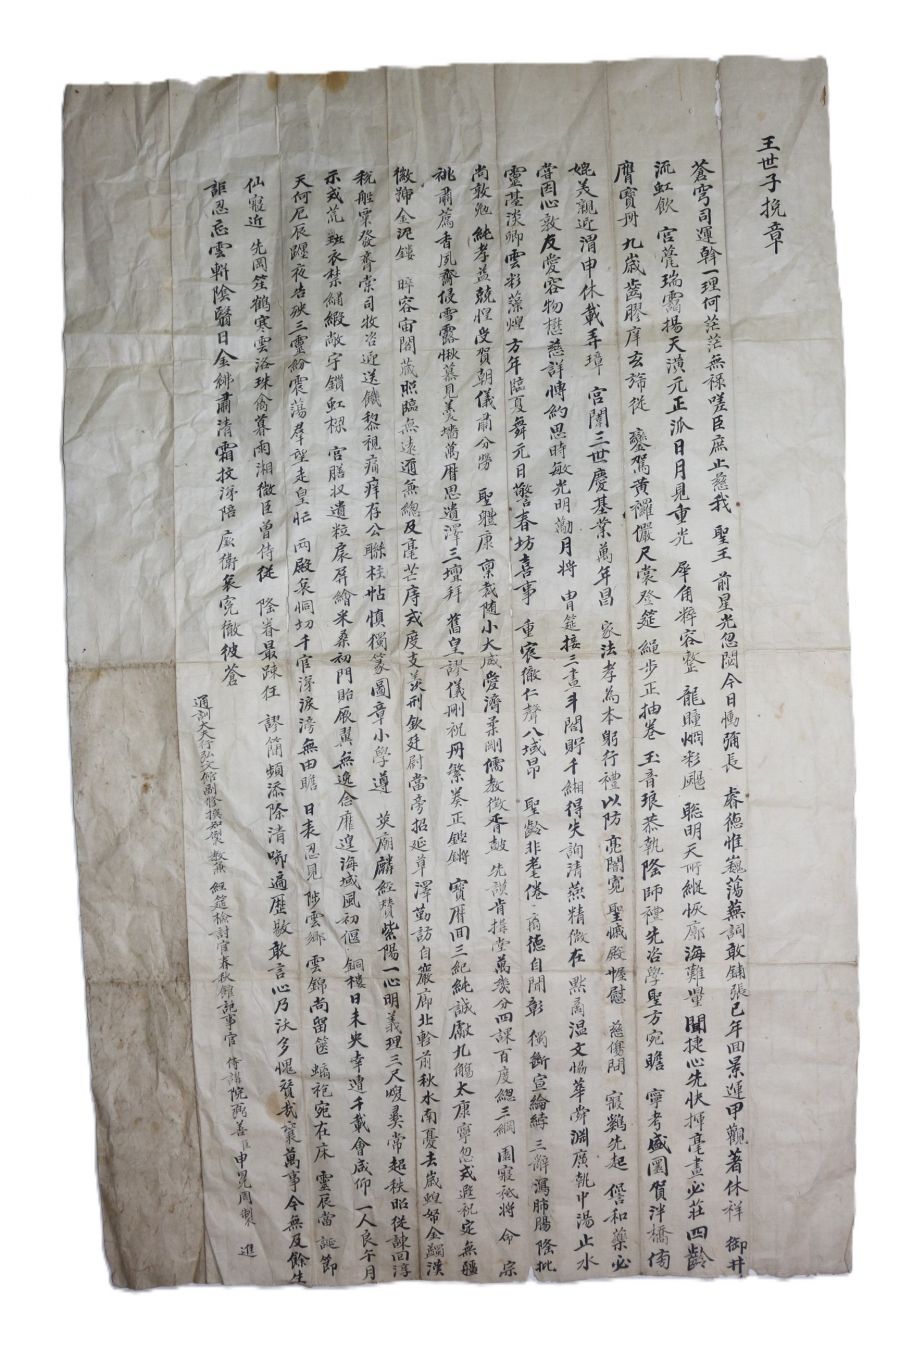 王世子挽章
蒼穹司運斡一理何茫茫無祿嗟臣庶止慈我 聖王 前星光忽閟今日慟彌長 睿德惟巍蕩蕪詞敢鋪張已年回景運甲觀著休祥 御井
流虹飲 宮甍瑞靄揚天潢元正派日月見重光 犀角粹容整 龍瞳烱彩颺 聰明天所縱恢廓海難量聞捷心先快揮毫畫必莊四齡
膺寶冊九歲齒膠庠玄蹄從 鑾駕黃襬儼尺裳登筵 繩步正抽卷 玉音琅恭執隆師禮先咨學聖方宛瞻 寧考盛圜賀泮橋傍
媲美親近渭申休載弄璋 宮闈三世慶基業萬年昌 家法孝為本躬行禮以防亮闇寬 聖慽殿幄慰 慈傷問 寢鷄先起 侍和藥必
嘗因心敦友愛容物懋慈詳博約思時敏光明勵月將 冑筵接三晝斗閣貯千緗得失詢清燕精微在 默扃溫文協華舜淵廣執中湯止水
靈基淡卿雲彩藻煌方年臨夏舞元日警春坊喜事 重宸徽仁聲八域昂 聖齡非耄倦 裔德自閒彰 獨斷宣綸綍 三辭瀉肺腸隆批
尚敦勉純孝益兢惶受賀朝儀肅分勞 聖體康 稟裁隨小大威愛濟柔剛儒教徵胥鼓 先謨肯構堂萬幾分四課百度總三綱園寢祗將 命 宗
祧肅薦香風齋侵雪露愀慕見羹墻萬曆思遺澤三壇拜 舊皇謬儀刪祝冊繁奏正鏗鏘 寶曆回三紀純誠獻九觴太康寧忽或遐祝定無疆
徽歸金泥鏤 睟容宙閣藏照臨無遠邇無總及毫芒庤或度支羨刑欽廷尉當旁招延草澤勤訪自巖廊北軫前秋水南憂去歲蝗帑金蠲漢
稅船粟發齊棠司牧咨迎送饑黎視痛痒存公聯柱帖愼獨篆圖章小學遵 英廟麟經贊紫陽一心明義理三尺嫂彜常超秩昭從諫回淳
示戒荒 班衣禁繡緞敞宇鎖虹樑 宮膳收遺粒扆屏繪米桑初門貽厥翼無逸含靡遑海域風初偃 銅樓日未央幸遭千載會咸仰 一人良午月
天何厄辰躔夜告殃三靈紛震蕩群望走皇忙 兩殿哀恫切千官涕淚滂無由瞻 日表忍見 陟雲鄉 雲錦尚留篋 蟒袍宛在床 靈辰當 誕節
仙寢近 先岡笙鶴寒雲洛珠禽暮雨湘微臣曾侍從 隆眷最踈狂 謬簡頻添除清啣遍歷敭敢言心乃沃多愧贊哉襄萬事今無及餘生
詎忍忘雲斬陰翳日金鉘肅清霜抆涕陪 扆衛哀宛徹彼蒼
通訓大夫行弘文館副修撰知製 敎兼 經筵檢討官春秋館記事官 侍講院弼善臣申冕周製 進